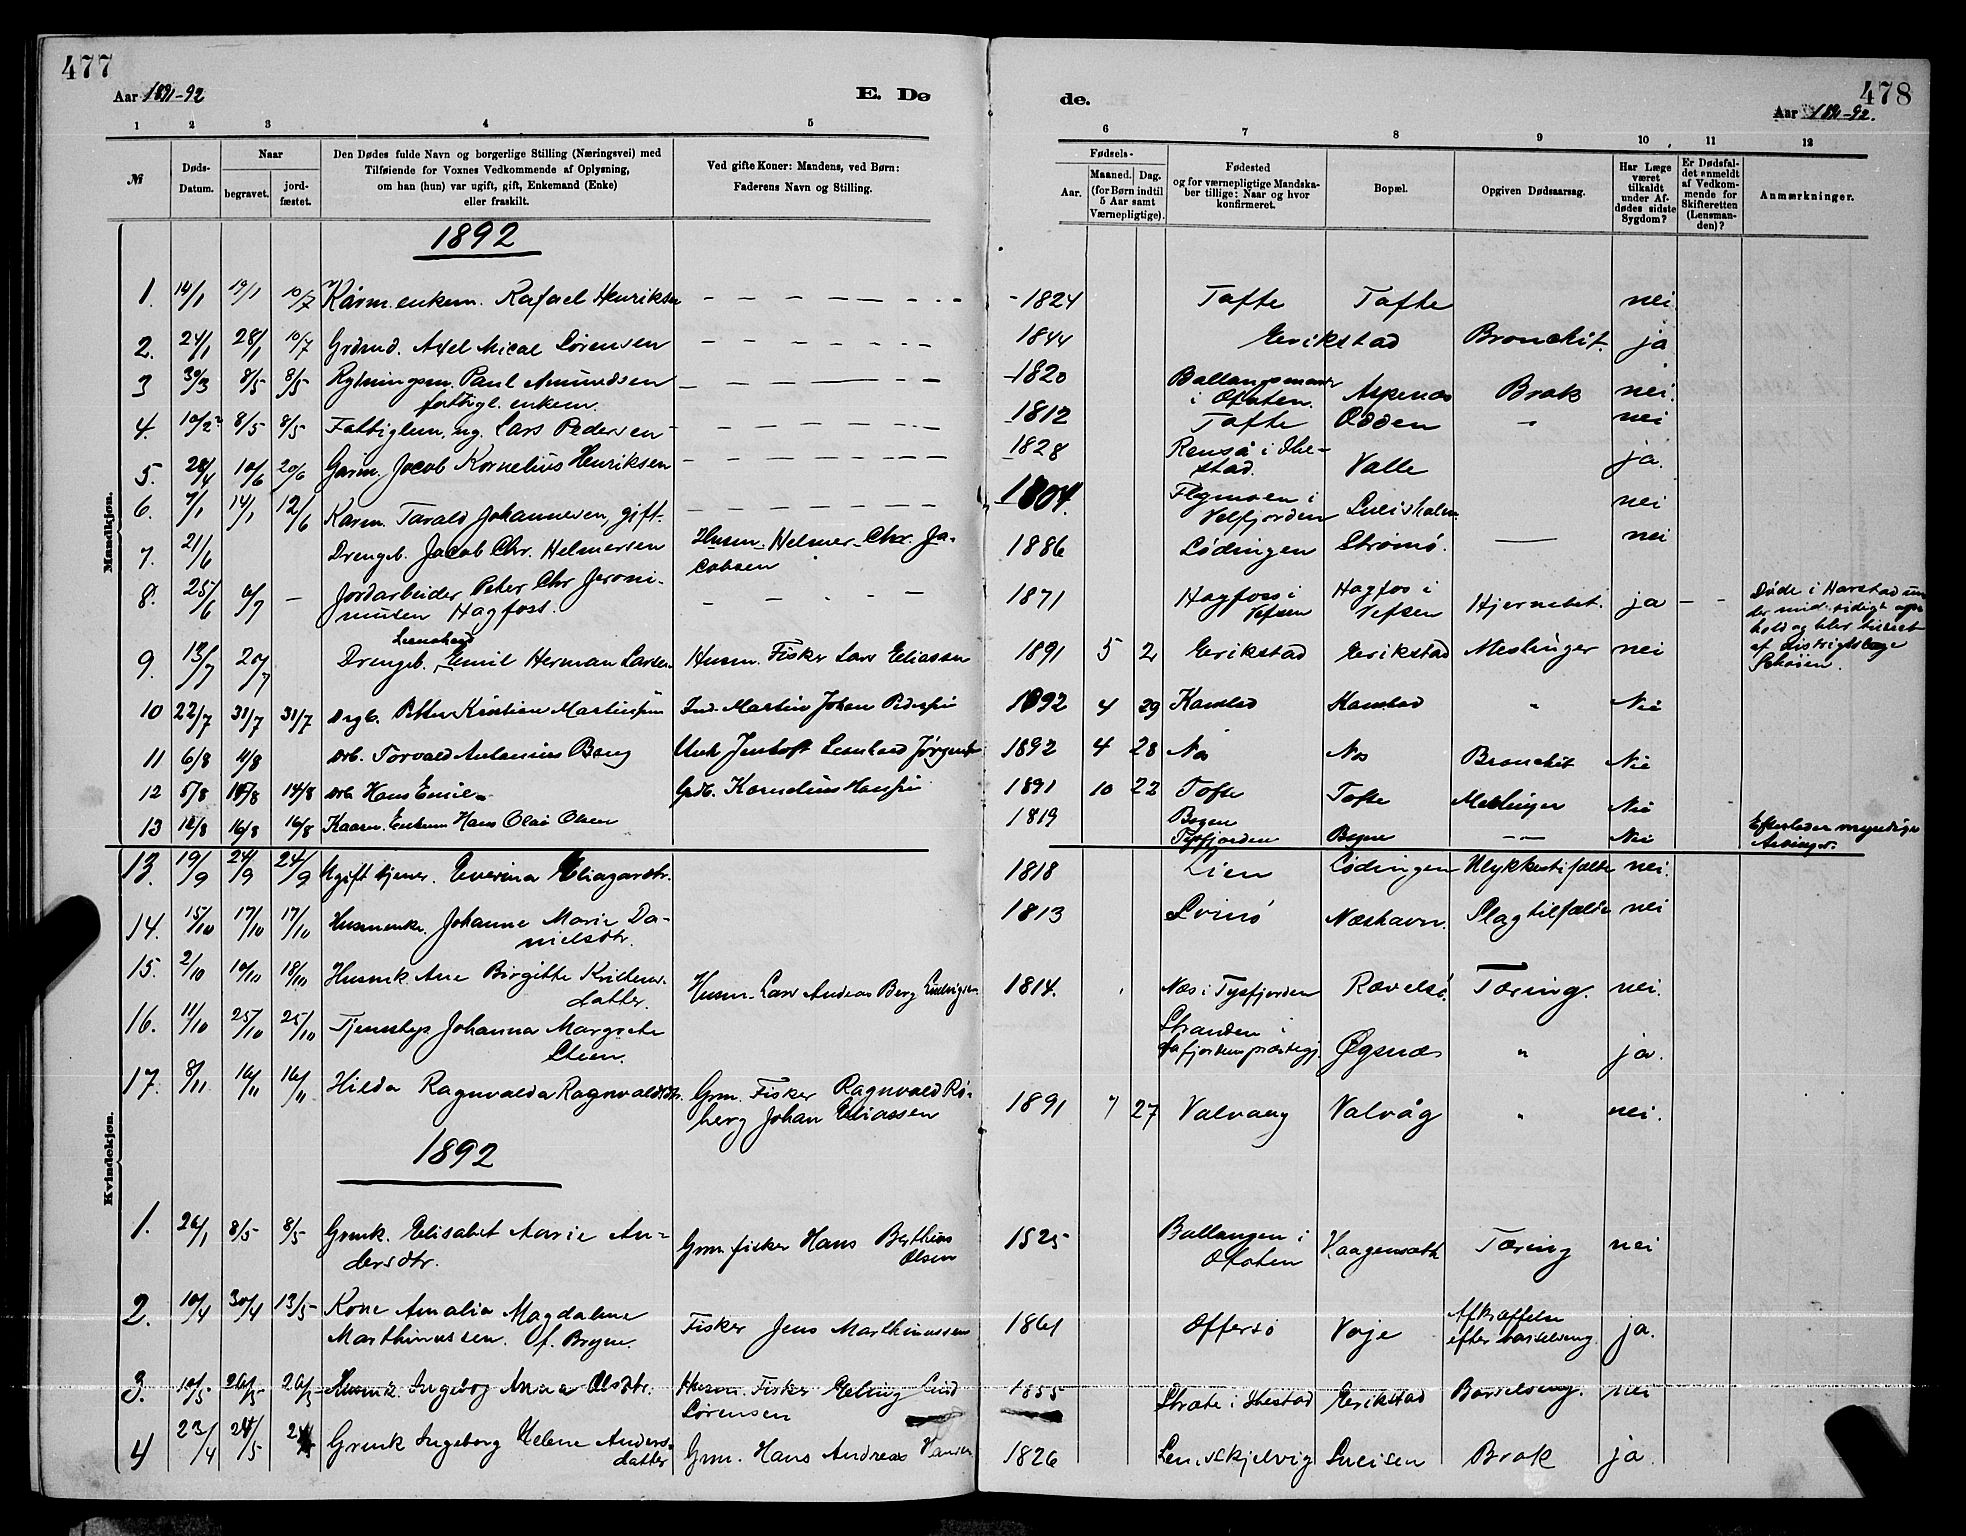 477
Aar 1891-92
E. Dø
de.
478
Aar 1891-92.
1 2 3 4 5 6 7 8 9 10 11 12
№
Døds-Datum.
Naar
begravet.
jord-fæstet.
Den Dødes fulde Navn og borgerlige Stilling (Næringsvei) med
Tilføiende for Voxnes Vedkommende af Oplysning,
om han (hun) var ugift, gift, Enkemand (Enke)
eller fraskilt.
Ved gifte Koner: Mandens, ved Børn:
Faderens Navn og Stilling.
Fødsels-
Aar.
Maaned. Dag.
(for Børn indtil
5 Aar samt
Værnepligtige).
Fødested
og for værnepligtige Mandska-
ber tillige: Naar og hvor
konfirmeret.
Bopæl.
Opgiven Dødsaarsag.
Har Læge
været
tilkaldt
under Af-
dødes sidste
Sygdom?
Er Dødsfal-
det anmeldt
af Vedkom-
mende for
Skifteretten
(Lensman-
den)?
Anmærkninger.
Mandkjøn.
1892
1. 14/1 19/1 10/7 Kårm. enkem. Rafael Henriksen - 1824 Tofte Tofte nei
2. 24/1 28/1 10/7 Grdmd. Axel Mical Sørensen - 1844 Erikstad Bronchit. ja
3 30/3 8/5 8/5 Rydningsm. Paul Amundsen - 1820 Ballangsmark Aspenæs Brok nei.
fattigl. enkem. i Ofoten.
4. 10/2 8/5 8/5 Fattiglem, ug. Lars Pedersen - 1812 Tofte Odden " nei
5. 28/4 10/6 20/6 Gaam. Jacob Kornelius Henriksen - 1828 Renså i Ibe-
stad. Valle ja.
6. 7/1 14/1 12/6 Karm. Tarald Johannesen, gift. - 1804. Flymoen i
Velfjorden nei
7. 21/6 Drengeb. Jacob Chr. Helmersen Husm. Helmer Chr. Ja-
cobsen 1886 Lødingen Strømø. — nei
8. 25/6 6/7 — Jordarbeider Peter Chr Jeroni-
musen Hagfoss. - 1871 Hagfoss i
Vefsen Hagfos i
Vefsen Hjernebet. ja — — Døde i Harstad un-
der midlertidigt op-
hold og blev tilseet
af distriktslæge
Schøien.
9. 13/7 20/7 Drengeb. Leonhard Emil Herman Larsen Husm. Fisker Lars Eliassen 1891 5 2 Erikstad Erikstad Meslinger nei
10 22/7 31/7 31/7 Drgb. Petter Kristian Martinsen Ind. Martin Johan Pedersen 1892 4 29 Kanstad Kanstad " Nei
11 6/8 11/8 Drb. Torvald Antonius Bang Jentoft Leonhard Jørgensen 1892 4 28 Nes Nes Bronchit Nei
12 5/8 14/8 14/8 Drb. Hans Emil Grdb. Kornelius Hansen 1891 10 22 Tofte Tofte Meslinger Nei
13 11/8 16/8 16/8 Kaarm. Enkem Hans Olai Olsen 1819 Bogen
Tysfjorden Bogen — Nei Efterlader myndige
Arvinger.
Kvindekjøn.
13. 19/9 24/9 24/9 Ugift tjener. Everina Eliasardtr. 1818 Lien Lødingen Ulykkestifælde nei.
14. 15/10 17/10 17/10 Husmenke. Johanne Marie Da-
nielsdtr. 1813 Svinø Næshavn. Slagtilfælde nei
15. 2/10 10/10 18/10 Husmk. Ane Birgitte Kristens-
datter. Husm. Lars Andreas Berg Ludvigsen 1814. Næs i Tysfjorden Rævelsø. Tæring. nei.
16. 11/10 25/10 25/10 Tjenestep. Johanna Margrete
Steen. Stranden i Øgsnæs " ja.
17. 8/11 16/11 16/11 Hilda Ragnvalda Ragnvaldsdtr. Grm. Fisker Ragnvald Rø-
berg Johan Eliassen 1891 7 27 Valvaag Valvåg " nei.
1892
1. 26/1 8/5 8/5 Grmk. Elisabet Marie An-
dersdtr. Grm. fisker Hans Berthius
Olsen 1825 Ballangen i
Ofoten Kaagensæth Tæring nei
2. 10/4 30/4 13/5 Kone Amalia Magdalene
Marthinussen. Fisker Jens Marthinussen 1861 Offersø Voje Afkræftelse
efter barselseng. ja.
3. 10/5 26/5 26/5 Husmk. Ingeborg Anna Olsdtr. Husm. Fisker Edling
Sørensen 1855 i Ibestad Erikstad Barselseng. nei
4 23/4 24/5 Grmk Ingeborg Helene Anders-
datter Grm. Hans Andreas Hansen 1826 Sneisen Brok ja.